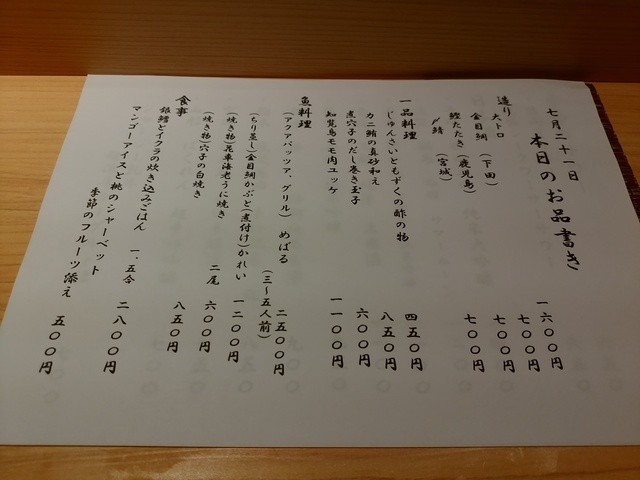 七月二十一日
本日のお品書き
造り
大トロ 一六〇〇円
金目鯛 (下田) 七〇〇円
鰹たたき (鹿児島) 七〇〇円
〆鯖 (宮城) 七〇〇円
一品料理
じゅんさいともずくの酢の物 四五〇円
カニ鮪の真砂和え 八五〇円
煮穴子のだし巻き玉子 六〇〇円
知覧鳥モモ肉ユッケ 一一〇〇円
魚料理
(アクアパッツア、グリル) めばる 二五〇〇円
(三～五人前)
(ちり蒸し)金目鯛かぶと(煮付け)かれい 一二〇〇円
(焼き物)花車海老うに焼き 二尾 六〇〇円
(焼き物)穴子の白焼き 八五〇円
食事
銀鱈とイクラの炊き込みごはん 一、五合 二八〇〇円
マンゴーアイスと桃のシャーベット
季節のフルーツ添え 五〇〇円